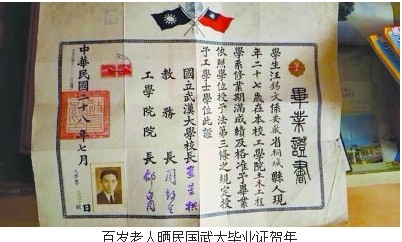 畢業證書
學生汪錫文係安徽省桐城縣人現
年二十七歲在本校工學院土木工程
學系修業期滿成績及格准予畢業
依照學位授予法第三條之規定授
予工學士學位此證
國立武漢大學校長王星拱
教務長
工學院院長
中華民國二十八年七月 日
百岁老人晒民国武大毕业证贺年